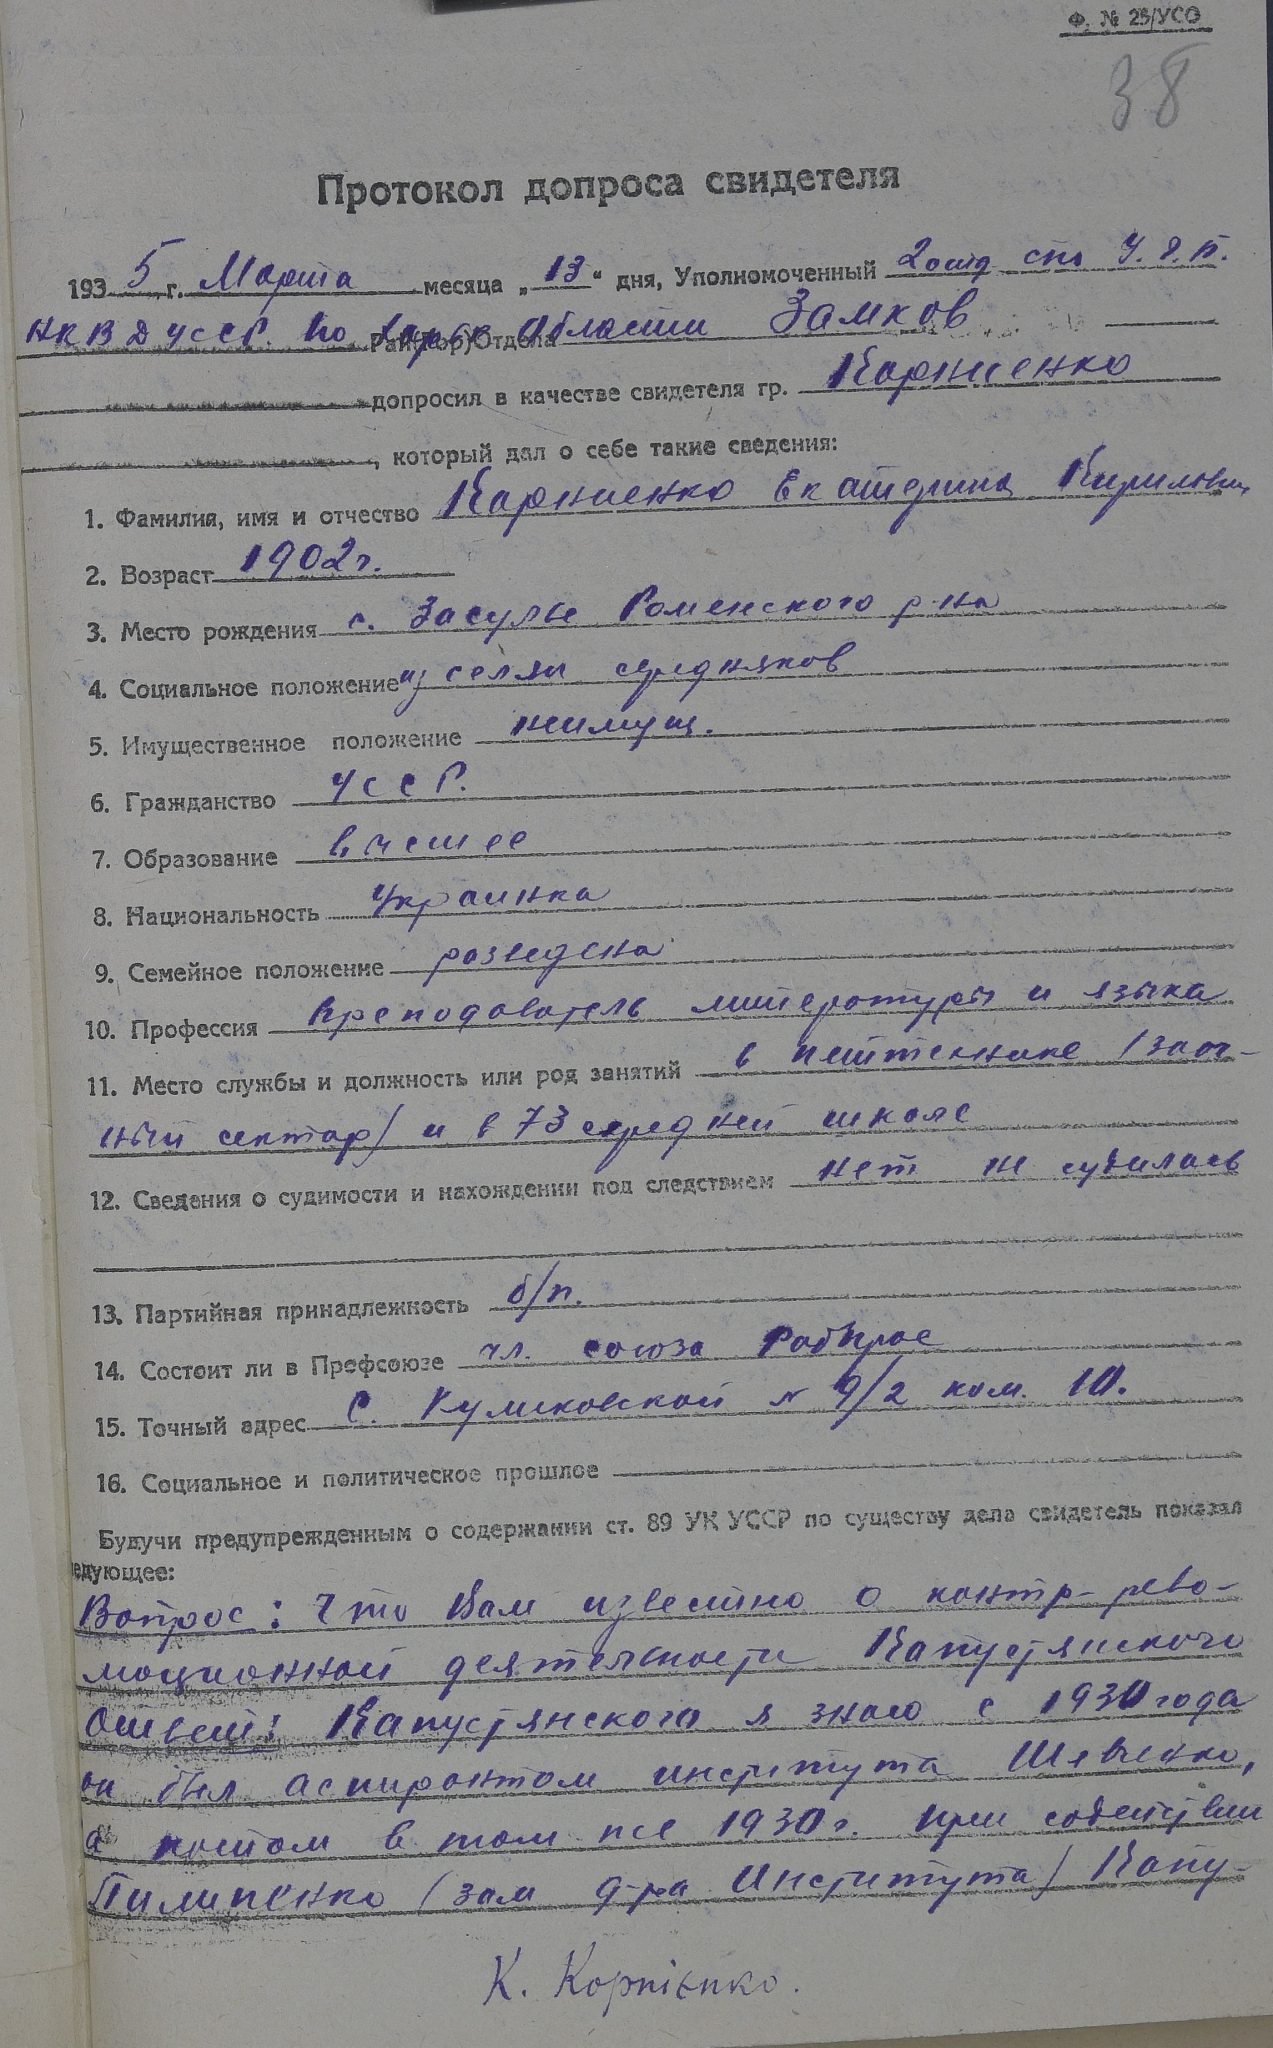 Ф. № 23/УСО
38
Протокол допроса свидетеля
193 5 г. Марта месяца „13" дня, Уполномоченный 2 отд СПО У.Г.Б.
НКВД УССР. по Харьк Рай(Гор)Отдела области Замков
допросил в качестве свидетеля гр. Корниенко
, который дал о себе такие сведения:
1. Фамилия, имя и отчество Корниенко Екатерина Кириловн
2. Возраст 1902 г.
3. Место рождения с. Засулье Роменского р-на
4. Социальное положение из селян середняков
5. Имущественное положение неимущ.
6. Гражданство УССР.
7. Образование высшее
8. Национальность Украинка
9. Семейное положение разведена
10. Профессия Преподователь литературы и языка
11. Место службы и должность или род занятий в (заоч-
ный сектор) и в 73 средней школе
12. Сведения о судимости и нахождении под следствием нет не судилась
13. Партийная принадлежность б/п.
14. Состоит ли в Профсоюзе чл. союза Рабпрос
15. Точный адрес С. Куликовской № 9/2 ком. 10.
16. Социальное и политическое прошлое
Будучи предупрежденным о содержании ст. 89 УК УССР по существу дела свидетель показал
едующее:
Вопрос: Что Вам известно о контр-рево-
люционной деятельности Капустянского
Ответ: Капустянского я знаю с 1930 года
он был аспирантом института Шевченко,
а потом в том же 1930 г. при содействии
Пилипенко (зам д-ра Института) Капу-
К. Корнієнко.